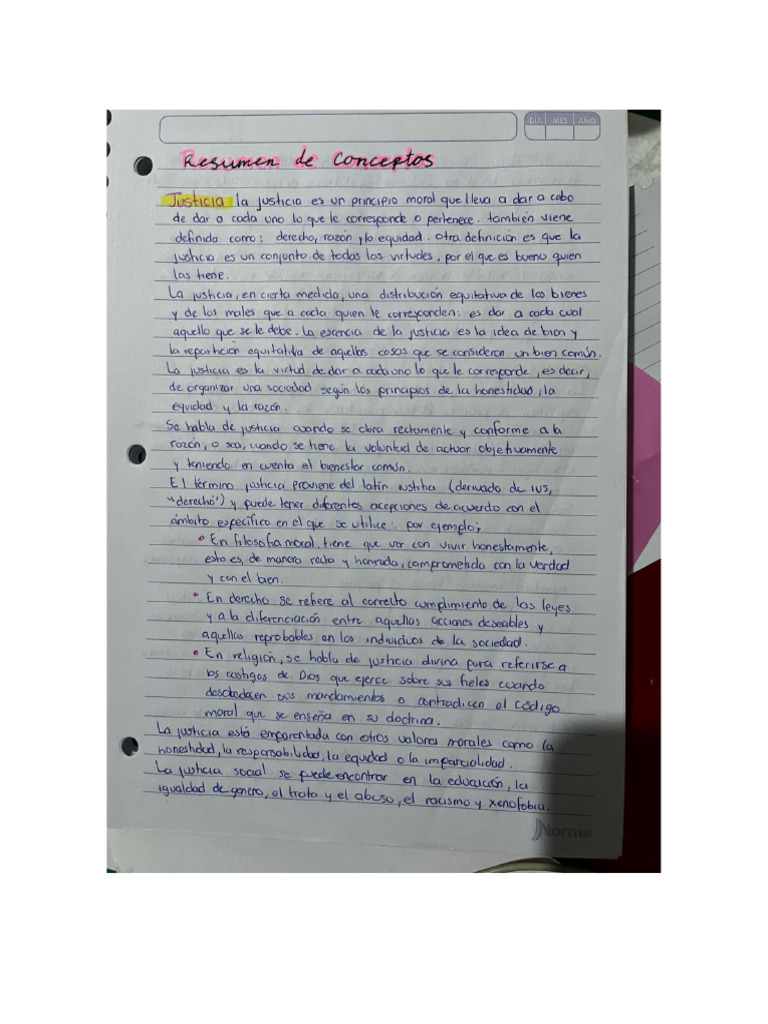 DÍA MES AÑO
Resumen de conceptos
Justicia la justicia es un principio moral que lleva a dar a cabo
de dar a cada uno lo que le corresponde o pertenece. también viene
definida como: derecho, razón y/o equidad. otra definición es que la
justicia es un conjunto de todas las virtudes, por el que es bueno quien
las tiene.
La justicia, en cierta medida, una distribución equitativa de los bienes
y de los males que a cada quien le corresponden: es dar a cada cual
aquello que se le debe. la escencia de la justicia es la idea de bien y
la repartición equitativa de aquellas cosas que se consideran un bien común.
La justicia es la virtud de dar a cada uno lo que le corresponde, es decir,
de organizar una sociedad según los principios de la honestidad, la
equidad y la razón.
Se habla de justicia cuando se obra rectamente y conforme a la
razón, o sea, cuando se tiene la voluntad de actuar objetivamente
y teniendo en cuenta el bienestar común.
El término justicia proviene del latín iustitia (derivado de ius,
"derecho") y puede tener diferentes acepciones de acuerdo con el
ámbito específico en el que se utilice. por ejemplo;
• En filosofía moral, tiene que ver con vivir honestamente,
esto es, de manera recta y honrada, comprometida con la verdad
y con el bien.
• En derecho se refiere al correcto cumplimiento de las leyes
y a la diferenciación entre aquellas acciones deseables y
aquellas reprobables en los individuos de la sociedad.
• En religión, se habla de justicia divina para referirse a
los castigos de Dios que ejerce sobre sus fieles cuando
desobedecen sus mandamientos o contradicen el código
moral que se enseña en su doctrina.
La justicia está emparentada con otros valores morales como la
honestidad, la responsabilidad, la equidad o la imparcialidad.
La justicia social se puede encontrar en la educación, la
igualdad de genero, el trata y el abuso, el racismo y xenofobia.
Norma